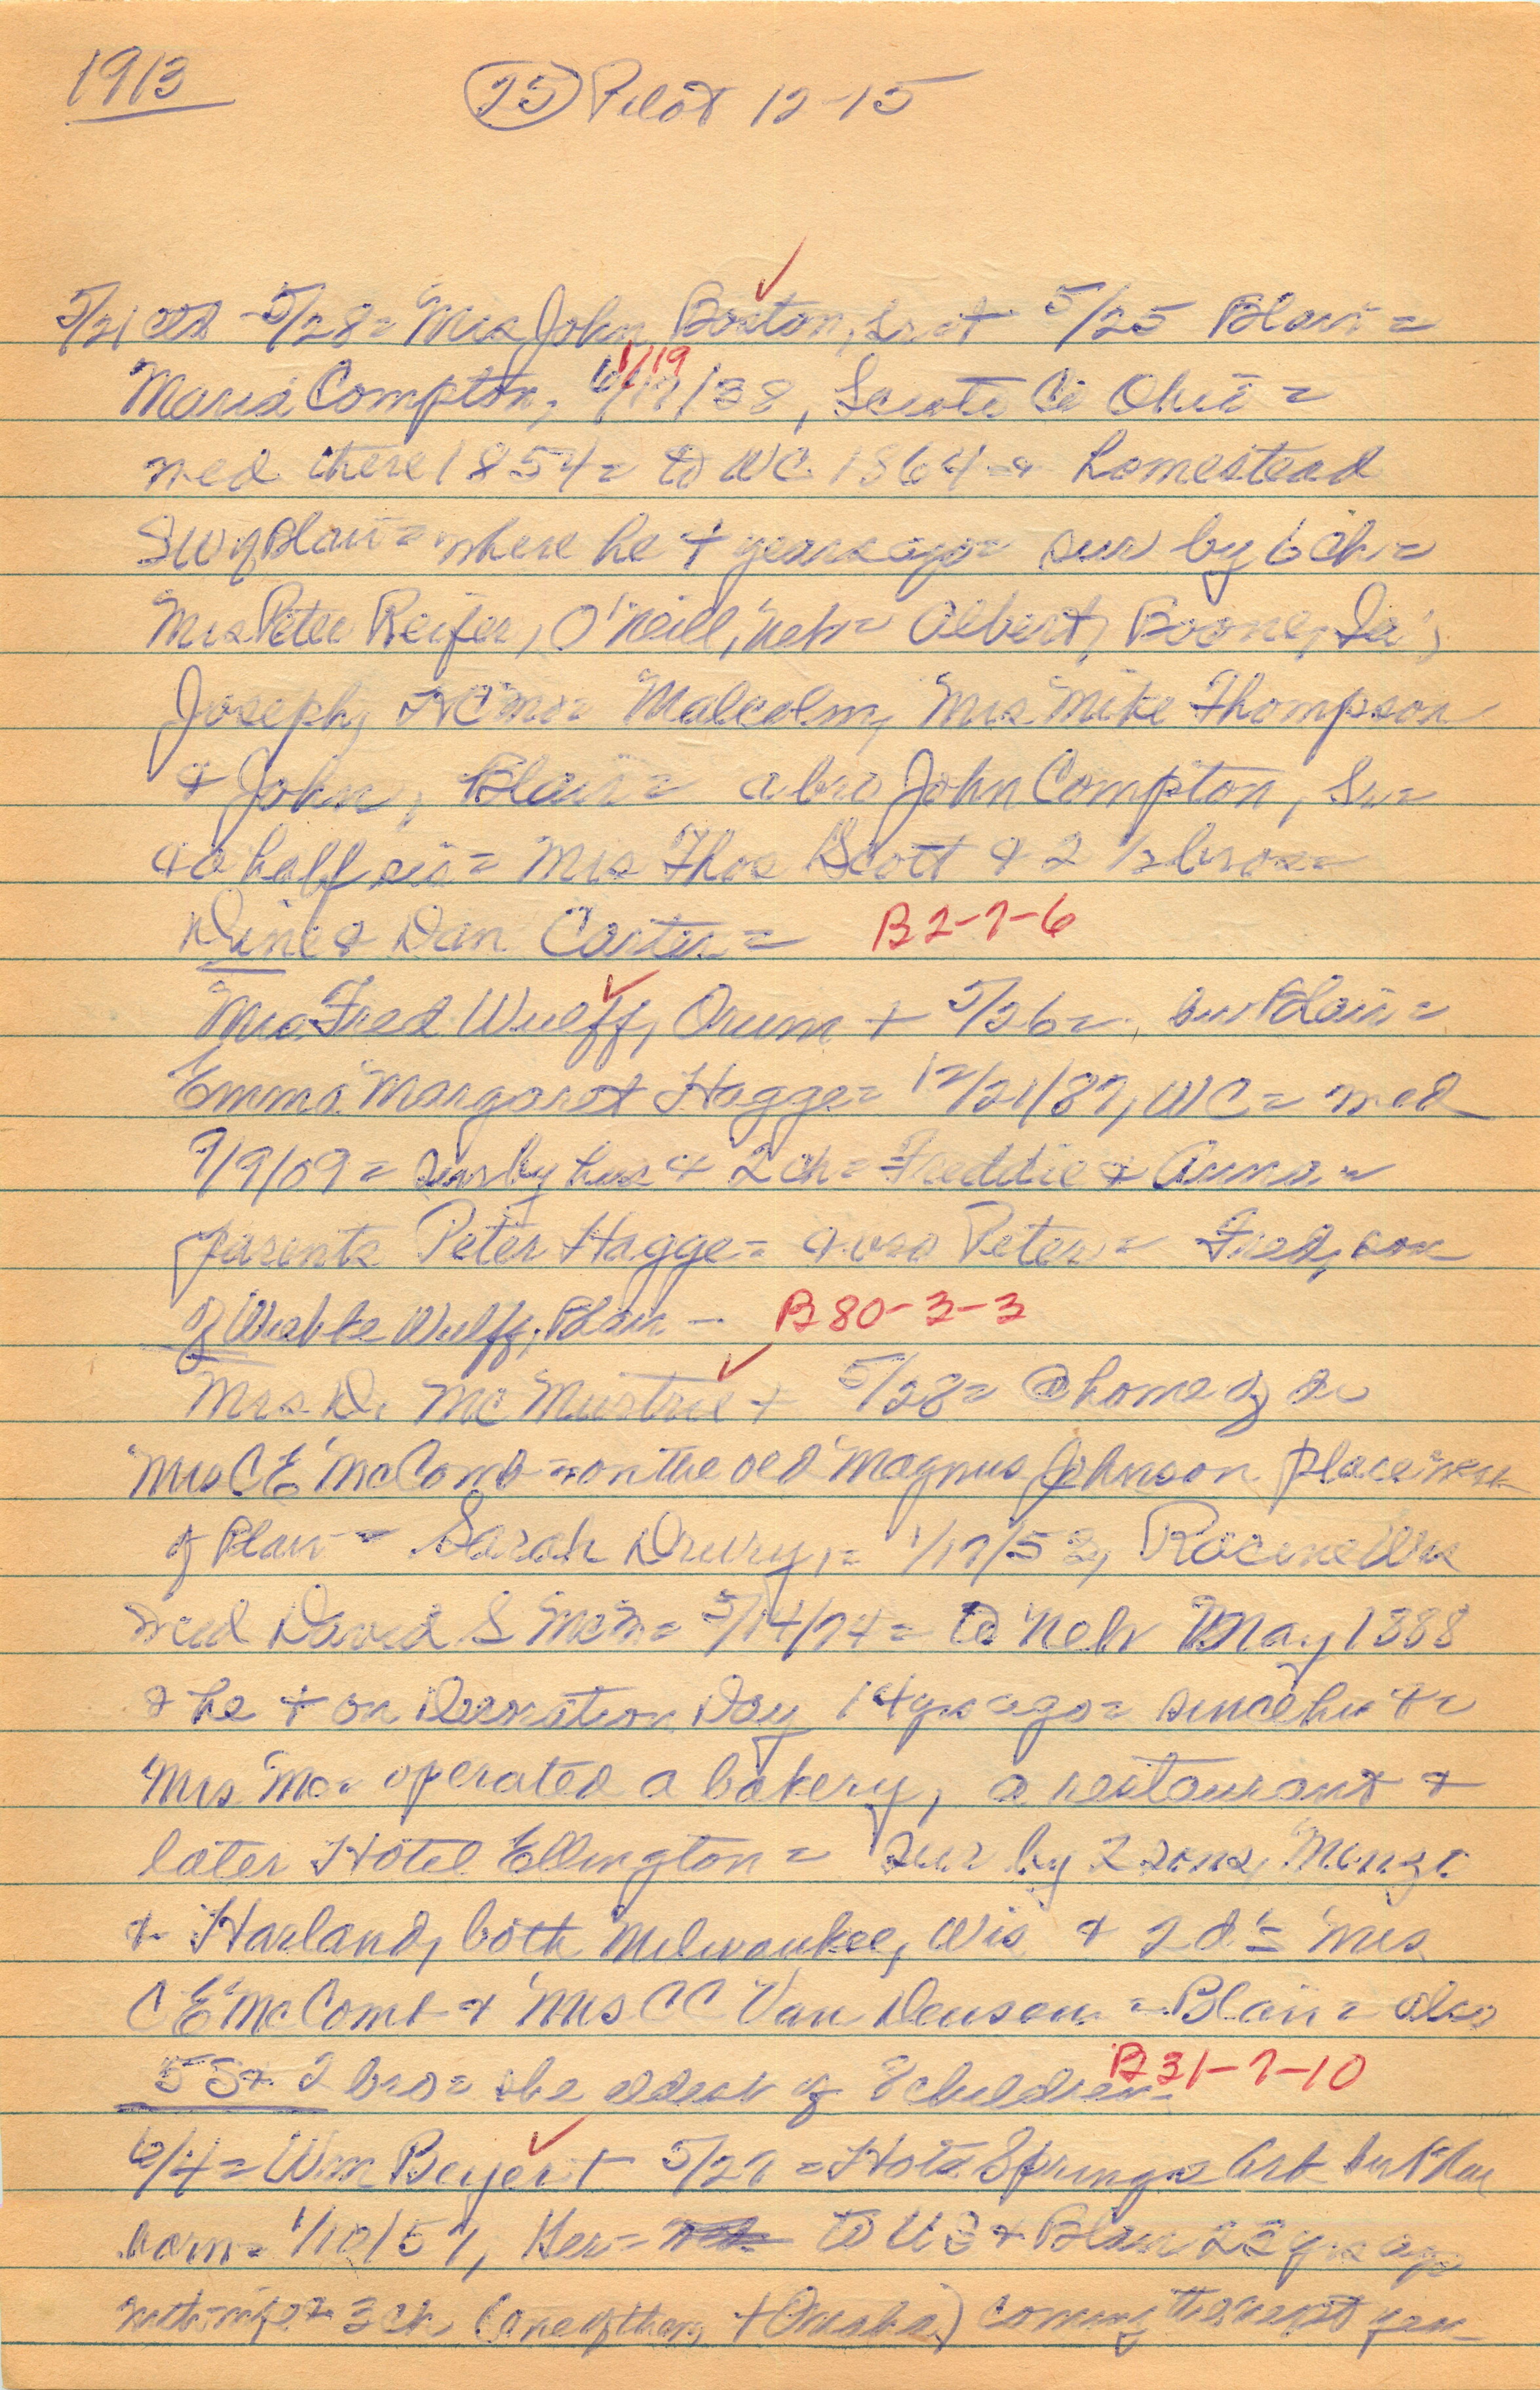 1913 (25) Pilot 12-15
5/21 5/28 = Mrs John Boston, Sr + 5/25 Blair =
Maria Compton, 1/19 /38, Scioto Co Ohio =
med there 1854 = to WC 1864 = homestead
SW of Blair = where he + years ago = sur by 6 ch =
Mrs Peter Reifer, O'Neill, Nebr = Albert, Boone, Ia,
Joseph, KC Mo = Malcolm, Mrs Mike Thompson
& John, Blair = a bro John Compton, Sr =
& a half sis = Mrs Thos Scott & 2 ½ bros =
& Dan Carter = B2-7-6
Mrs Fred Wulff, Orum + 5/26 = bur Blair =
Emma Margaret Hagge = 12/21/87, WC = med
7/9/09 = sur by hus & 2 ch = Freddie & Anna =
parents Peter Hagge = & bro Peter = Fred, son
of Wiebke Wulff, Blair - B80-3-3
Mrs D. Mc + 5/28 = @ home of da
Mrs CE McComb = on the old Magnus Johnson place
of Blair = Sarah Drury, = 1/17/53, Racine Wis
med David S McM = 5/14/74 = to Nebr May 1888
& he + on Decoration Day 14 yrs ago = since his + =
Mrs Mc = operated a bakery, a restaurant &
later Hotel Ellington = sur by 2 sons,
& Harland, both Milwaukee, Wis & 2 d's = Mrs
CE McComb & Mrs CC Van Deusen = Blair = also
5 S & 2 bro = she eldest of 8 children = B31-7-10
6/4 = Wm Beyer + 5/27 = Hot Springs Ark bur Blair
born = 1/10/57, Ger = to US & Blair 23 yrs ago
with wife & 3 ch (one of them + Omaha) coming the next year